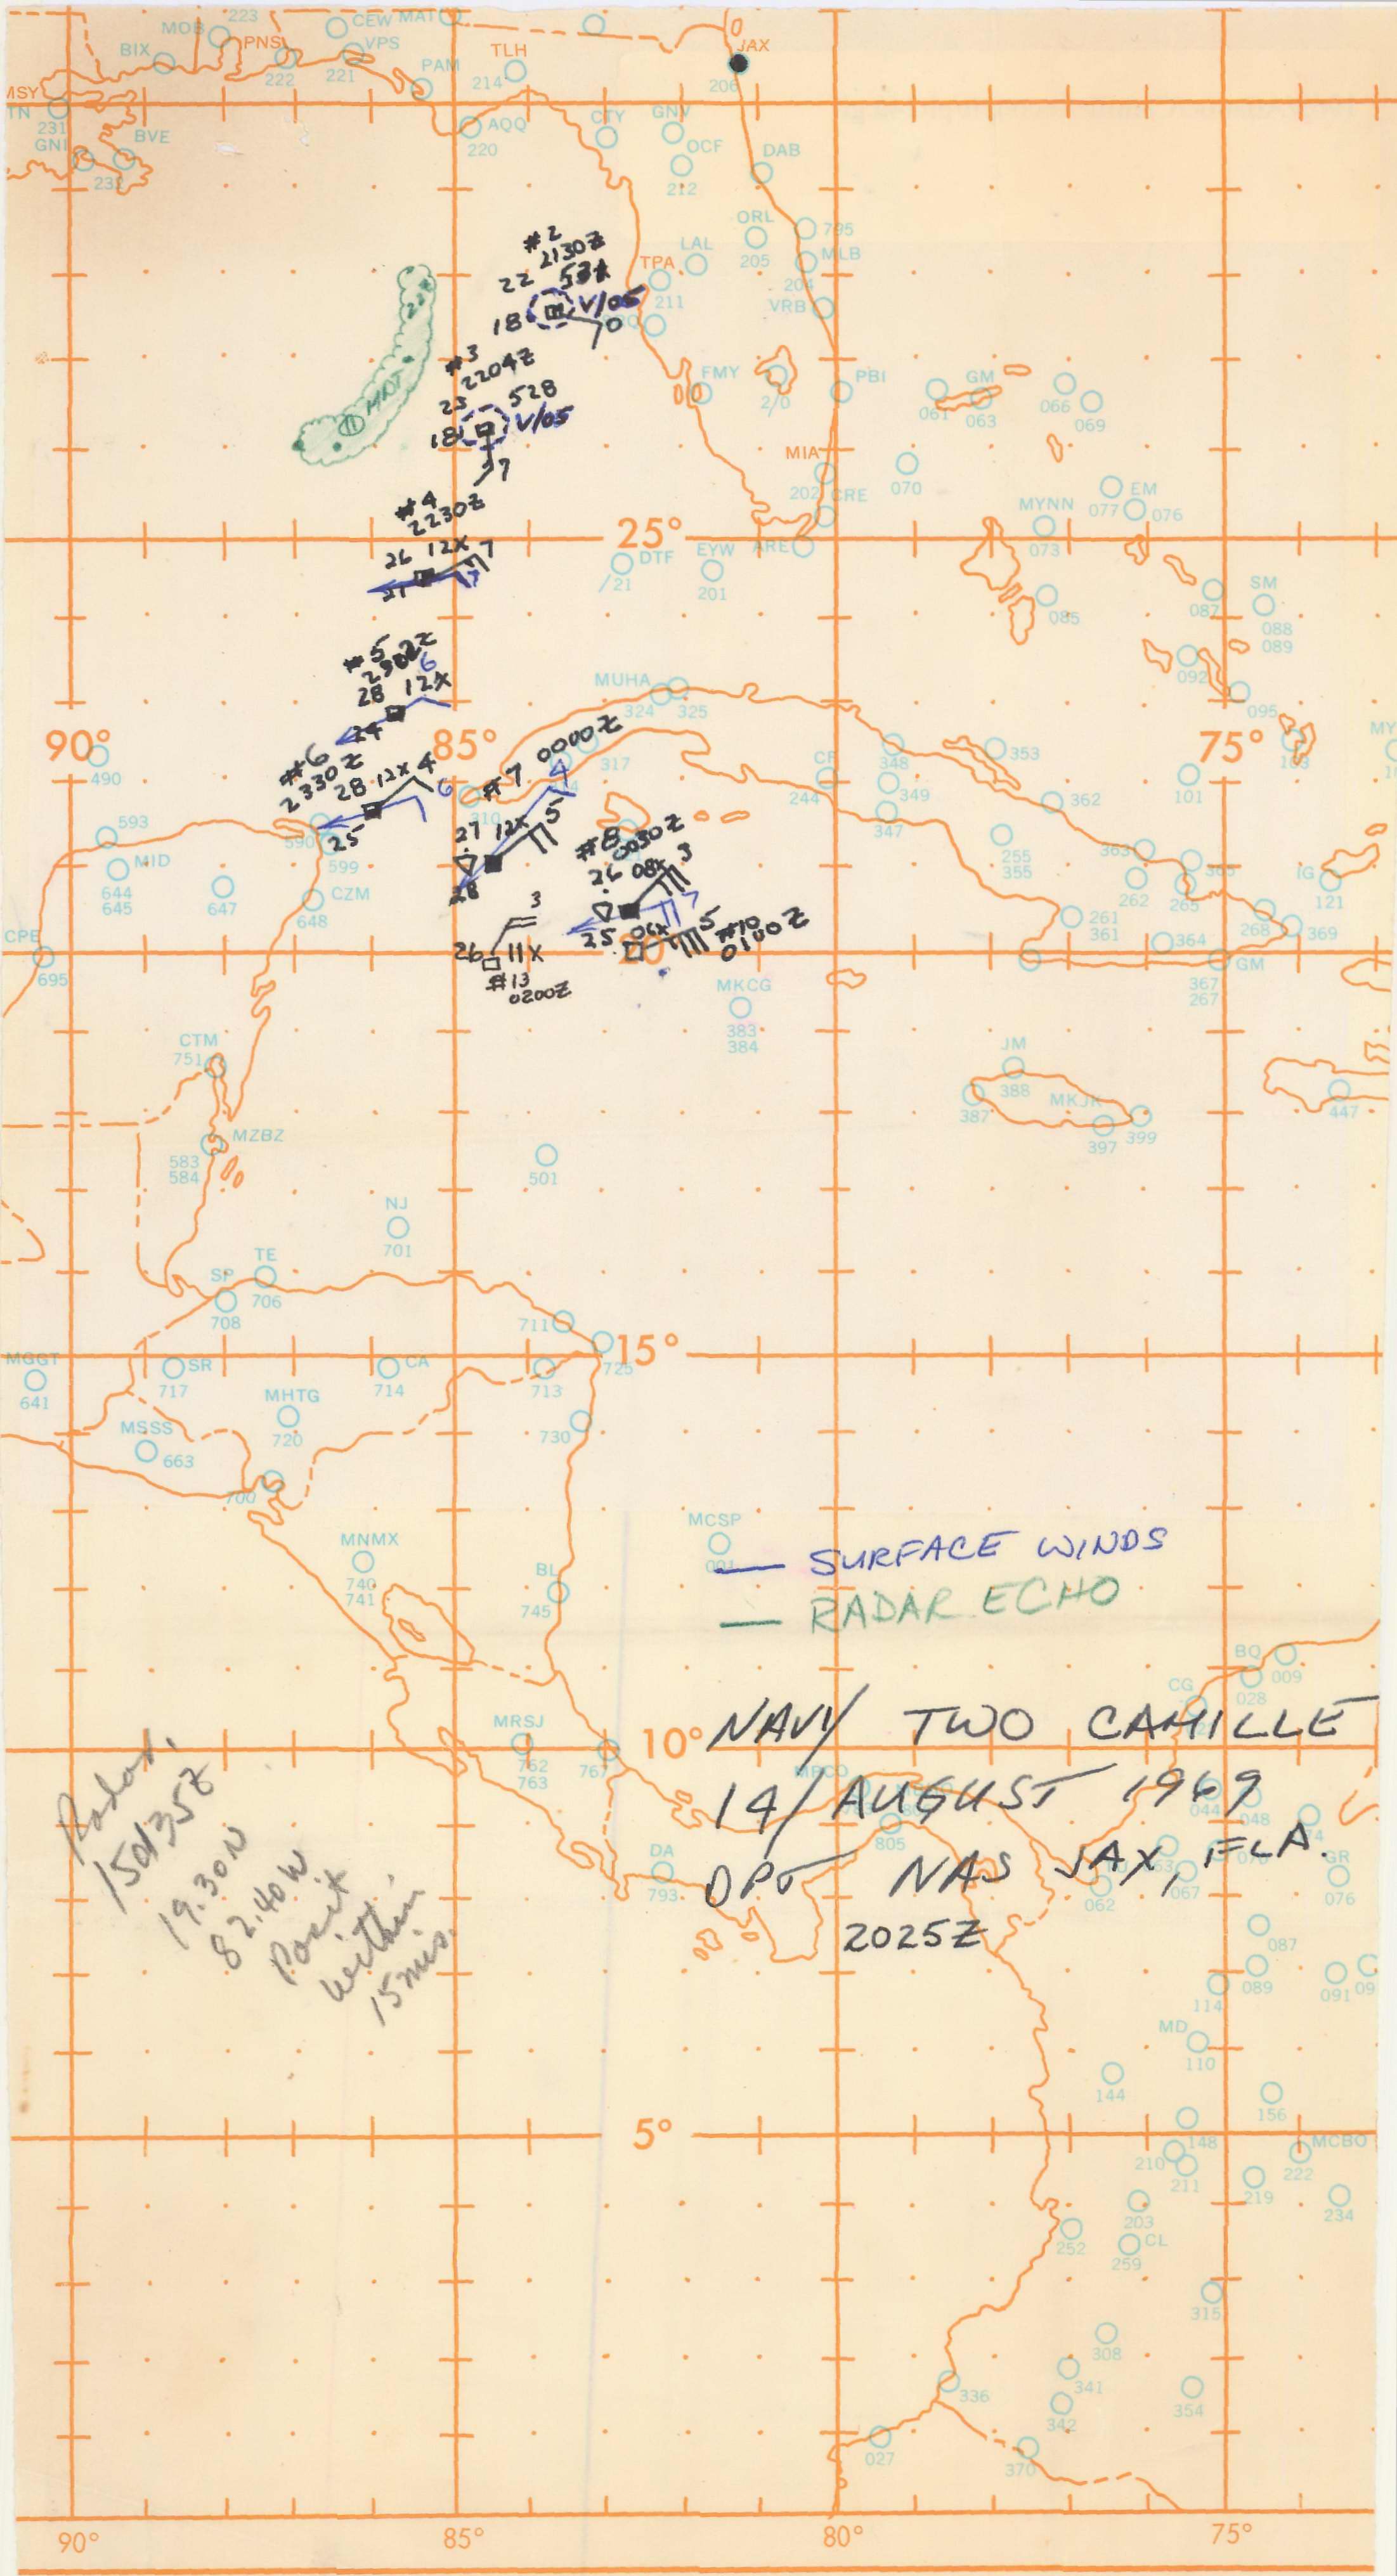 223
MOB
CEW
MAT
BIX
PNS
VPS
TLH
JAX
222
221
PAM
214
206
MSY
TN
231
GNI
BVE
232
AQQ
220
CTY
GNV
OCF
DAB
212
#2
2130Z
22
18
V/05
ORL
795
LAL
205
MLB
TPA
204
211
VRB
#3
2204Z
23
528
18
V/05
7
HRDT
FMY
2/0
PBI
GM
061
063
066
069
MIA
202
CRE
070
EM
077
076
MYNN
073
#4
2230Z
26 12X 7
27
7
25°
DTF
/21
EYW
201
ARE
085
087
SM
088
089
092
095
#5
2302Z
6
28 12X
24
MUHA
324
325
90°
490
85°
75°
#6
2330Z
28 12X 4
6
25
#7 0000Z
4
27 12X 5
28
317
310
CF
244
348
349
347
353
362
101
103
MY
593
590
599
MID
644
645
647
CZM
648
#8 0030Z
26 08X 3
7
25
06X 5 #10
0100Z
20
3
26 11X
#13
0200Z
255
355
363
262
365
265
IG
121
261
361
364
268
369
GM
367
267
CPE
695
MKCG
383
384
CTM
751
JM
388
387
MKJK
397
399
447
MZBZ
583
584
501
NJ
701
TE
706
SP
708
711
15°
725
MGGT
641
SR
717
CA
714
713
MHTG
720
MSSS
663
730
700
MCSP
001
MNMX
740
741
BL
745
— SURFACE WINDS
— RADAR ECHO
BQ
009
028
CG
MRSJ
762
763
767
10°
NAVY TWO CAMILLE
14/AUGUST 1969
DPT NAS JAX, FLA.
2025Z
805
044
048
DA
793
062
067
GR
076
Radar.
150135Z
19.30N
82.40W
Posit
within
15 mis.
087
089
091
09
114
MD
110
144
156
5°
148
MCBO
210
211
222
219
234
203
252
CL
259
315
308
341
336
342
354
027
370
90°
85°
80°
75°